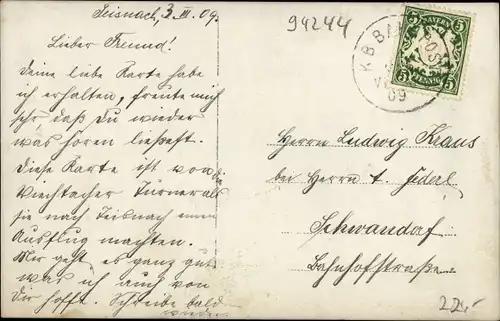 Teisnach, 3. III. 09.
94244
Lieber Freund!
Deine liebe Karte habe
ich erhalten, freute mich
sehr daß Du wieder
was hören ließest.
Diese Karte ist von die
Viechtacher Turner als
sie nach Teisnach einen
Ausflug machten.
Mir geht es ganz gut
was ich auch von
Dir hoffe. Schreibe bald
wieder
K.B.BA
09
BAYERN
5 5
5 PFENNIG 5
Herrn Ludwig Kraus
bei Herrn
Schwandorf
Bahnhofstraße.